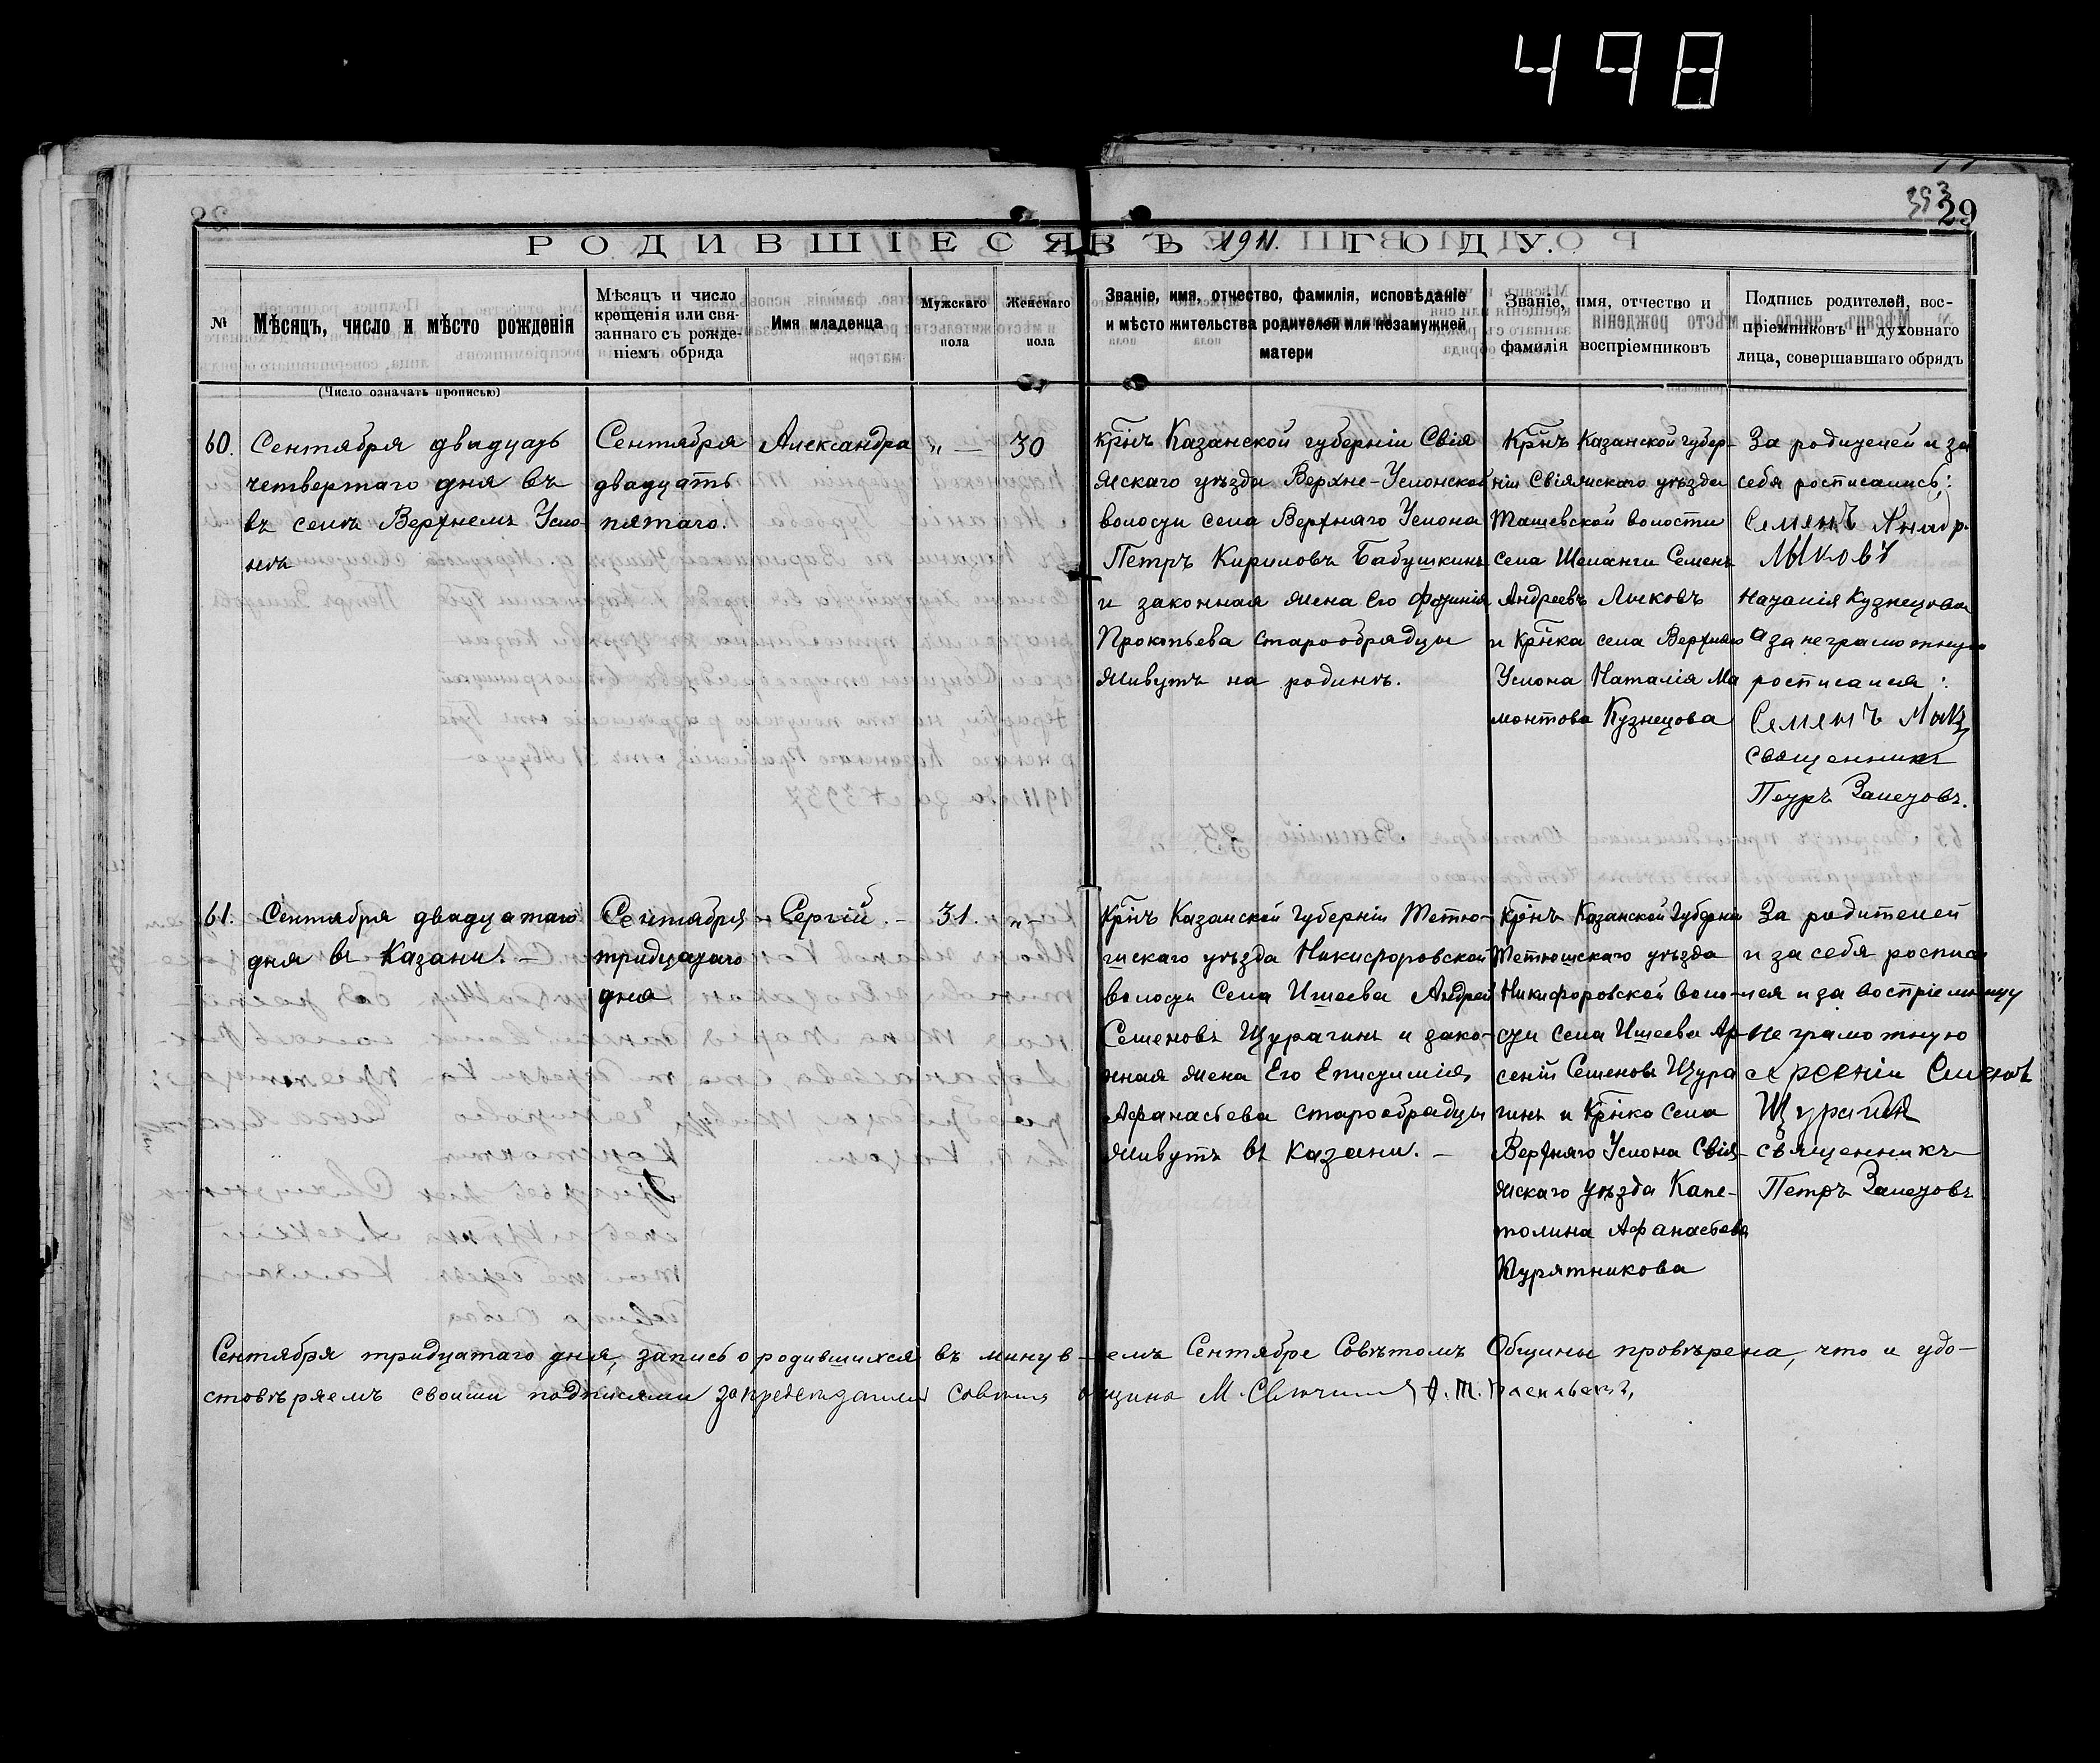 498
393
29
РОДИВШІЕСЯ ВЪ 1911. ГОДУ.
№
Мѣсяцъ, число и мѣсто рожденія
(Число означать прописью)
Мѣсяцъ и число
крещенія или свя-
заннаго съ рожде-
ніемъ обряда
Имя младенца
Мужскаго
пола
Женскаго
пола
Званіе, имя, отчество, фамилія, исповѣданіе
и мѣсто жительства родителей или незамужней
матери
Званіе, имя, отчество и
фамилія воспріемниковъ
Подпись родителей, вос-
пріемниковъ и духовнаго
лица, совершавшаго обрядъ
60.
Сентября двадцать
четвертаго дня въ
въ селѣ Верхнемъ Усло-
нѣ
Сентября
двадцать
пятаго.
Александра
" —
30
Крнъ Казанской губерніи Свія
жскаго уѣзда Верхне-Услонской
волости села Верхняго Услона
Петръ Кириловъ Бабушкинъ
и законная жена Его Фотинія
Прокопьева старообрядцы
живутъ на родинѣ.
Крнъ Казанской губер-
ніи Свіяжскаго уѣзда
Ташевской волости
села Шеланги Семенъ
Андреевъ Лыковъ
и Крнка села Верхняго
Услона Наталія Ма
монтова Кузнецова
За родителей и за
себя росписались:
Семенъ Андр.
Лыковъ
Наталія Кузнецова
а за неграмотную
росписался:
Семенъ Лыкъ
священникъ
Петръ Залетовъ.
61.
Сентября двадцатаго
дня въ Казани. —
Сентября
тридцатаго
дня
Сергій. —
31.
"
Крнъ Казанской Губерніи Тетю-
шскаго уѣзда Никифоровской
волости Села Ишеева Андрей
Семеновъ Щурагинъ и зако-
нная жена Его Епистимія
Афанасьева старообрядцы
живутъ въ Казани. —
Крнъ Казанской Губерніи
Тетюшскаго уѣзда
Никифоровской воло-
сти села Ишеева Ар-
сеній Семеновъ Щура
гинъ и Крнка села
Верхняго Услона Свія-
жскаго уѣзда Капе-
толина Афанасьева
Курятникова
За родителей
и за себя росписа
лся и за воспріемницу
не грамотную
Арсеніи Семеновъ
Щурагин
священникъ
Петръ Залетовъ
Сентября тридцатаго дня, запись о родившихся въ минув-емъ Сентябре Совѣтомъ Общины провѣрена, что и удо-
стовѣряемъ своими подписями за председателя Совета община М.